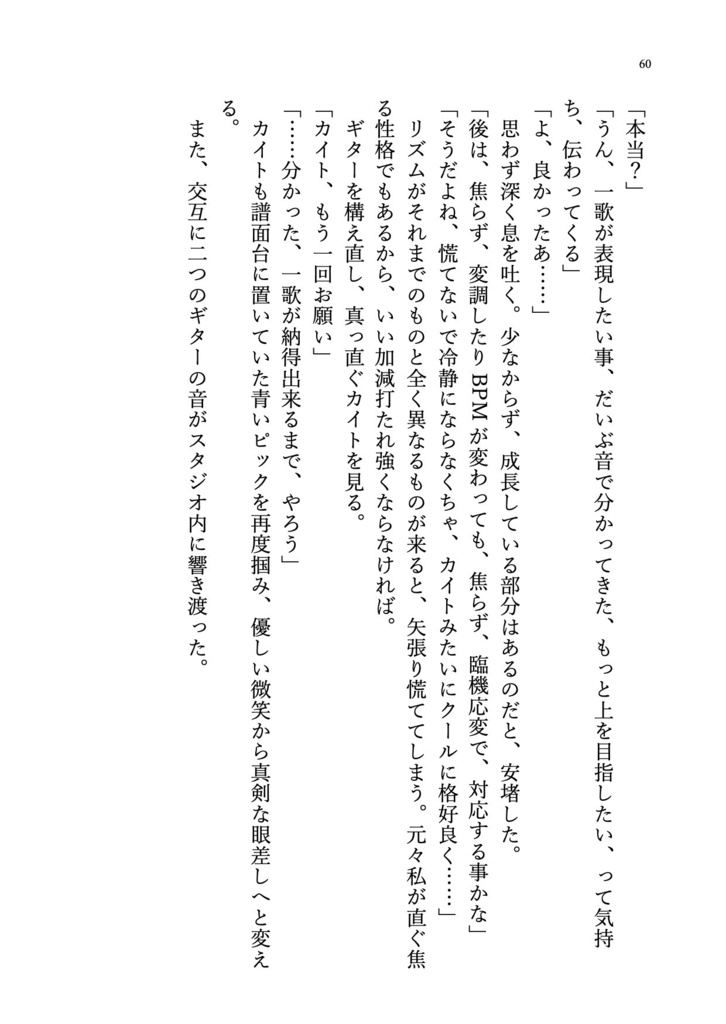 60
「本当？」
「うん、一歌が表現したい事、だいぶ音で分かってきた、もっと上を目指したい、って気持
ち、伝わってくる」
「よ、良かったあ……」
　思わず深く息を吐く。少なからず、成長している部分はあるのだと、安堵した。
「後は、焦らず、変調したり BPM が変わっても、焦らず、臨機応変で、対応する事かな」
「そうだよね、慌てないで冷静にならなくちゃ、カイトみたいにクールに格好良く……」
　リズムがそれまでのものと全く異なるものが来ると、矢張り慌ててしまう。元々私が直ぐ焦
る性格でもあるから、いい加減打たれ強くならなければ。
　ギターを構え直し、真っ直ぐカイトを見る。
「カイト、もう一回お願い」
「……分かった、一歌が納得出来るまで、やろう」
　カイトも譜面台に置いていた青いピックを再度掴み、優しい微笑から真剣な眼差しへと変え
る。
　また、交互に二つのギターの音がスタジオ内に響き渡った。